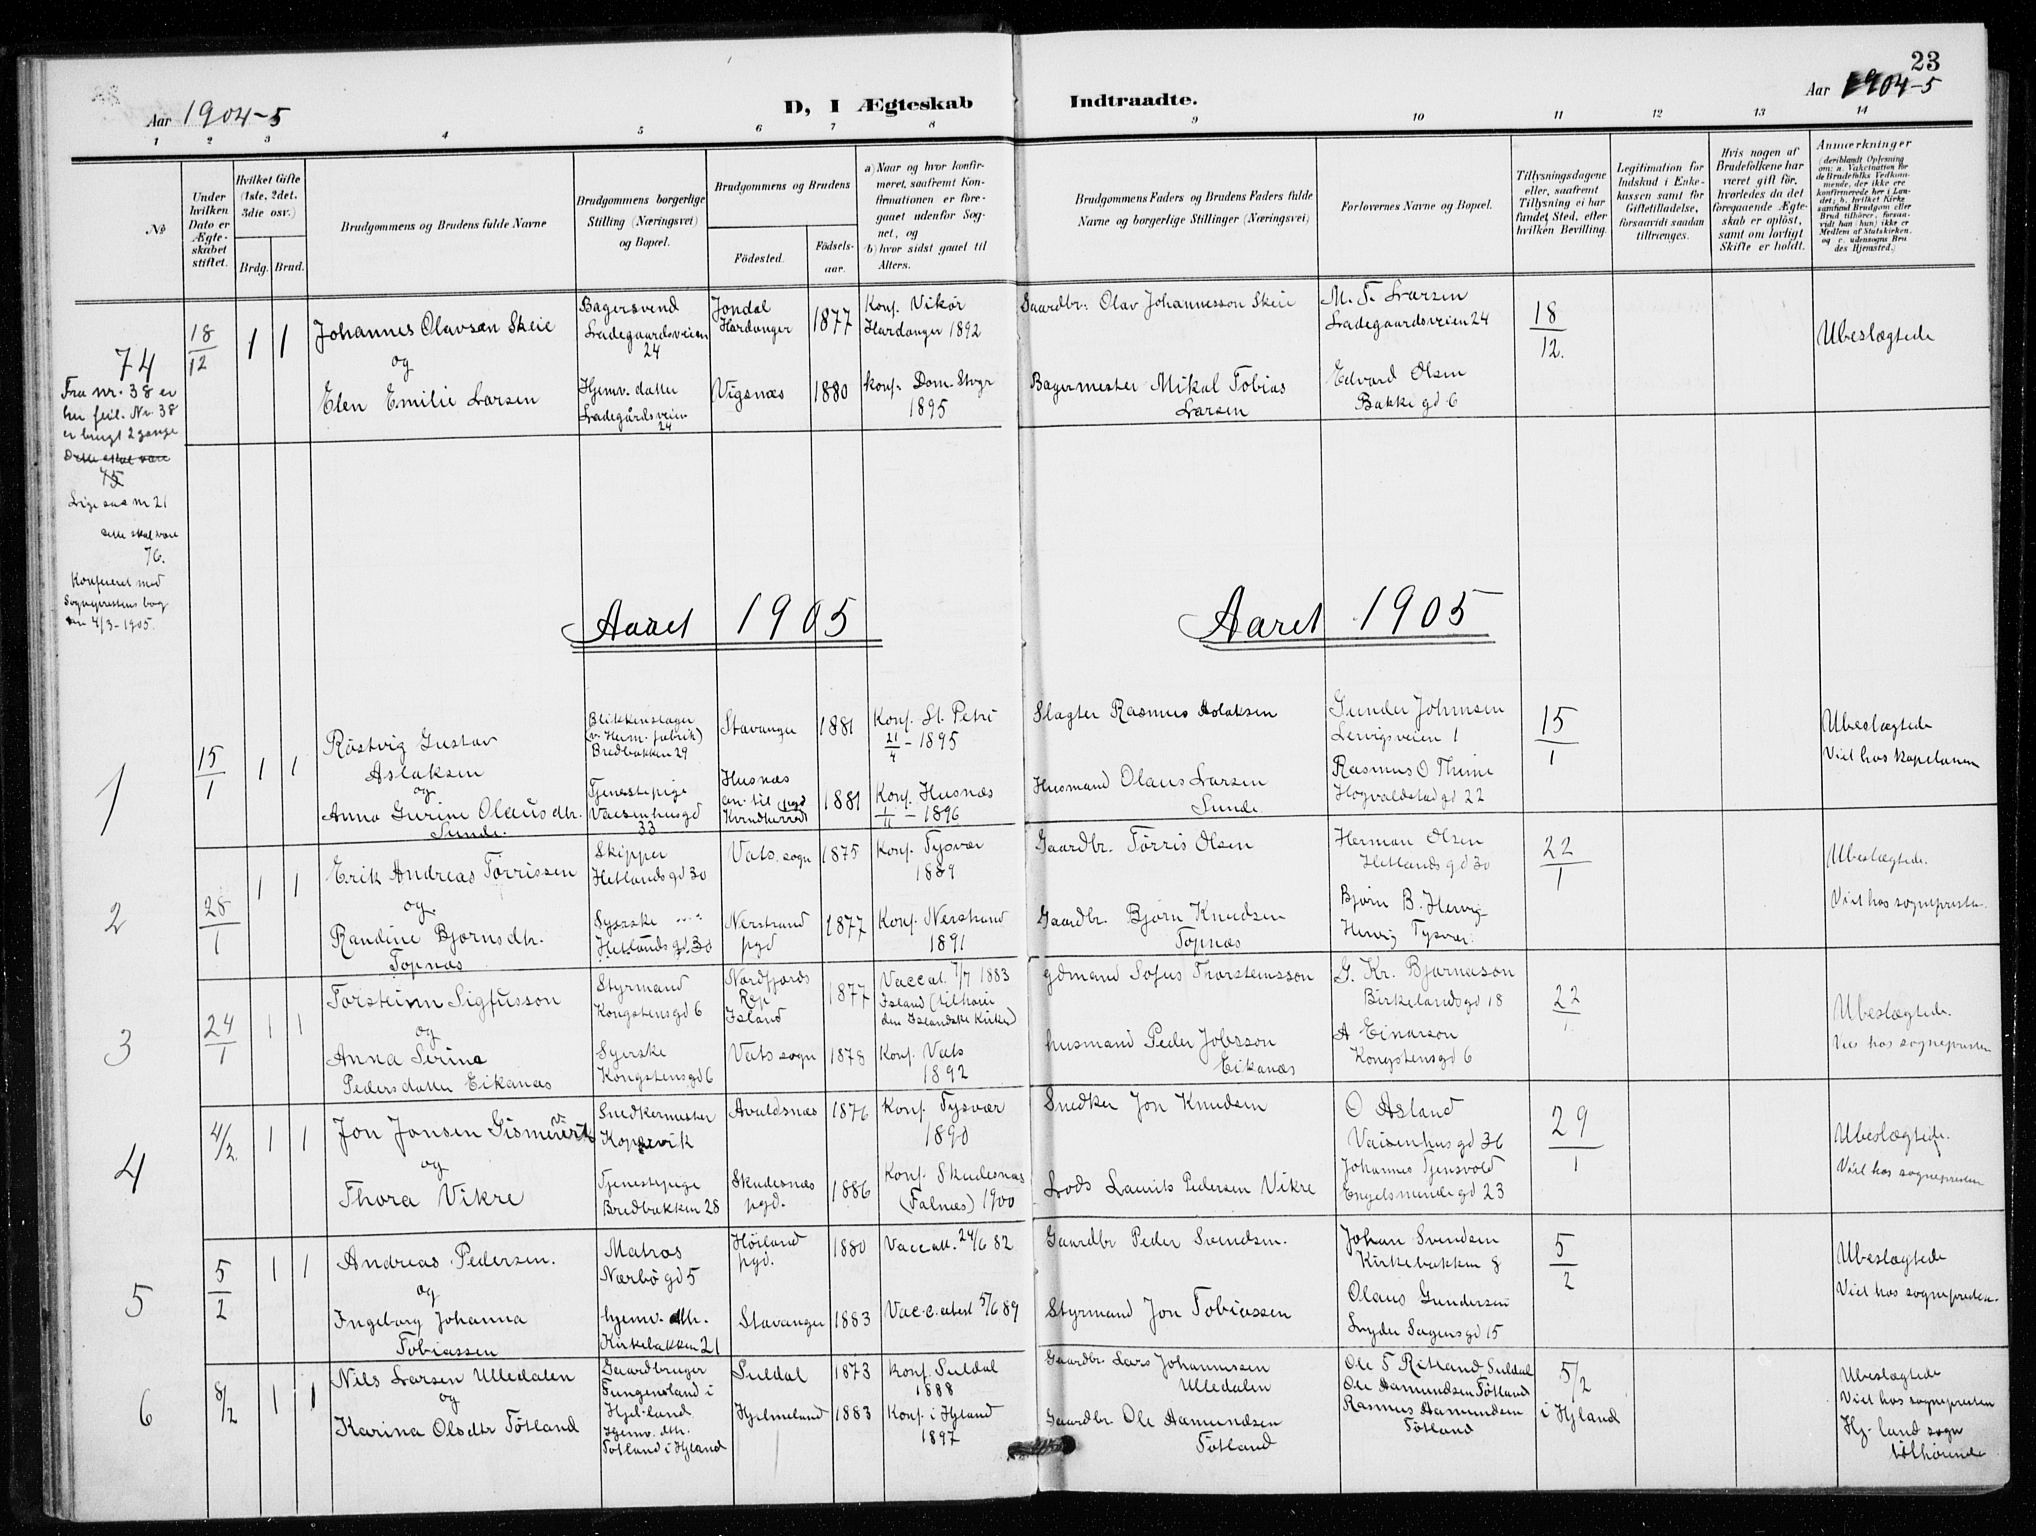 23
Aar 1904-5
D, I Ægteskab
Indtraadte.
Aar 1904-5
1 2 3 4 5 6 7 8 9 10 11 12 13 14
No
Under hvilken Dato er Ægteskabet stiftet.
Hvilket Gifte (1ste, 2det, 3die osv.)
Brdg. Brud.
Brudgommens og Brudens fulde Navne
Brudgommens borgerlige Stilling (Næringsvei) og Bopæl.
Brudgommens og Brudens
Fødested.
Fødselsaar.
a) Naar og hvor konfirmeret, saafremt Konfirmationen er foregaaet udenfor Sognet, og
b) hvor sidst gaaet til Alters.
Brudgommens Faders og Brudens Faders fulde Navne og borgerlige Stillinger (Næringsvei)
Forlovernes Navne og Bopæl.
Tillysningsdagene eller, saafremt Tillysning ei har fundet Sted, efter hvilken Bevilling.
Legitimation for Indskud i Enkekassen samt for Giftetilladelse, forsaavidt saadan tiltrænges.
Hvis nogen af Brudefolkene har været gift før, hvorledes da det foregaaende Ægteskab er opløst, samt om lovligt Skifte er holdt.
Anmærkninger
74
Fra nr. 38 er
her feil. Nr. 38
er brugt 2 gange
Dette skal være
75
Lige saa nr 21
dette skal være
76.
Konfereret med
Sogneprestens bog
den 4/3-1905.
18/12 1 1
Johannes Olavsen Skeie
og
Elen Emilie Larsen
Bagersvend
Ladegaardsveien
24
Hjemv. datter
Ladegårdsveien
24
Jondal
Hardanger
1877
Vigsnæs
1880
Konf. Vikør
Hardanger 1892
Konf. Dom. Stvgr
1895
Gaardbr. Olav Johannesson Skeie
Bagermester Mikal Tobias
Larsen
M. T. Larsen
Ladegaardsveien 24
Edvard Olsen
Bakkegd 6
18/12.
Ubeslægtede
Aaret 1905
Aaret 1905
1
15/1 1 1
Röstvig Gustav
Aslaksen
og
Anna Gurine Olausdtr.
Sunde.
Blikkenslager
(v. Herm. fabrik)
Bredbakken 29
Tjenestepige
Vaisenhusgd
33
Stavanger
1881
Husnæs
Kvindherred
1881
Konf. St. Petri
21/4 - 1895
Konf. Husnæs
1/11 - 1896
Slagter Rasmus Aslaksen
Husmand Olaus Larsen
Sunde.
Gunder Johnsen
Lervigsveien 1
Rasmus O Thime
Hogvaldstadgd 22
15/1
Ubeslægtede
Viet hos kapelanen
2
28/1 1 1
Erik Andreas Törrissen
og
Randine Bjørnsdtr.
Topnæs
Skipper
Hetlandsgd 30
Syerske
Hetlandsgd 30
Vats. sogn
1875
Nerstrand
pgd
1877
Konf. Tysvær
1889
Konf. Nerstrand
1891
Gaardbr. Törris Olsen
Gaardbr. Bjørn Knudsen
Topnæs
Herman Olsen
Hetlandsgd 30
Bjørn B. Hervig
Hervig Tysvær.
22/1
Ubeslægtede.
Viet hos sognepresten.
3
24/1 1 1
Torsteinn Sigfusson
og
Anna Serina
Pedersdatter Eikanæs
Styrmand
Kongstensgd 6
Syerske
Kongstensgd 6
Nordfjords
Rep
Island
1877
Vats sogn
1878
Vaccat. 7/7 1883
Island (tilhører
den Islandske Kirke)
Konf. Vats
1892
gdmand Sofus Thorsteinsson
husmand Peder Jobsson
Eikanæs
G. Kr. Bjarnason
Birkelandsgd 18
A Einarson
Kongstensgd 6
22/1
Ubeslægtede.
Viet hos sognepresten
4
4/2. 1 1
Jon Jonsen Gismervik
og
Thora Vikre
Snedkermester
Kopervik
Tjenestepige
Bredbakken 28
Avaldsnæs
1876
Skudesnæs
pgd.
1886
Konf. Tysvær
1890
Konf. Skudesnæs
(Falnæs) 1900
Snedker Jon Knudsen
Lods Laurits Pedersen Vikre
O Asland
Vaisenhusgd 36
Johannes Tjensvold
Engelsmindegd 23
29/1
Ubeslægtede.
Viet hos sognepresten
5
5/2 1 1
Andreas Pedersen.
og
Ingeborg Johanna
Tobiassen
Matros
Nærbögd 5
hjemv. dtr.
Kirkebakken 21
Höiland
pgd.
1880
Stavanger
1883
Vaccatt. 24/6 82
Vacc. attest 5/6 89
Gaardbr Peder Svendsen.
Styrmand Jon Tobiassen
Johan Svendsen
Kirkebakken 8
Olaus Gundersen
Lyder Sagensgd 15
5/2
Ubeslægtede
Viet hos sognepresten.
6
8/2 1 1
Nils Larsen Ulledalen
og
Karina Olsdtr Tötland
Gaardbruger
Fungensland i
Hjel.land.
Hjemv. dtr.
Tötland i Hjland
Suldal
1873
Hjelmeland
1883
Konf. Suldal
1888
Konf. i Hjland
1897
Gaardbr. Lars Johannessen
Ulledalen
Gaardbr. Ole Aamundsen
Tötland
Ole T Ritland Suldal
Ole Aamundsen Tötland
Rasmus Aamundsen
Tötland
5/2
i Hjland
Ubeslægtede
Viet hos sognepresten
Hj. land sogn
tilhørende